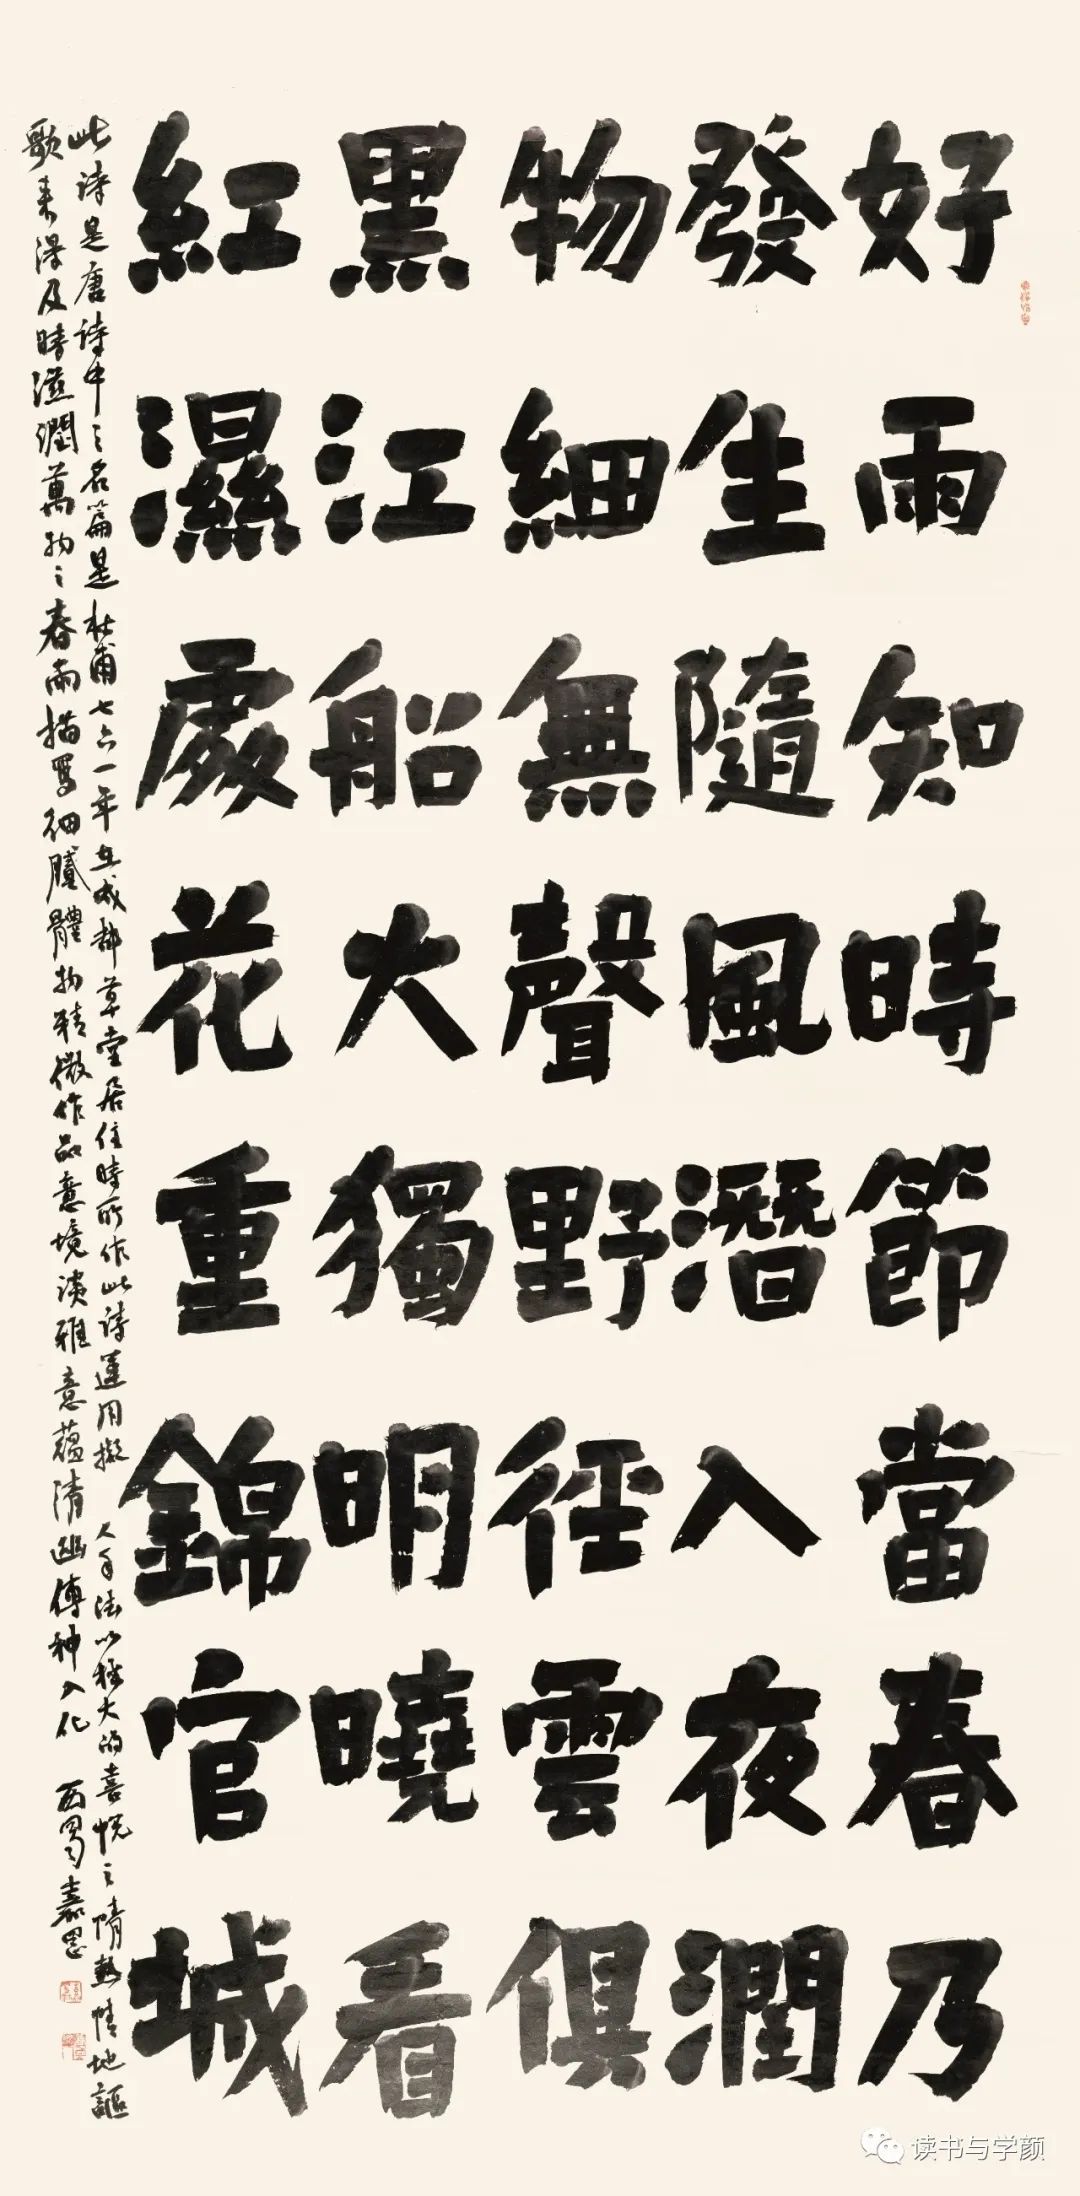 好雨知時節當春乃
發生隨風潛入夜潤
物細無聲野徑雲俱
黑江船大獨明曉看
紅濕處花重錦官城
此詩是唐詩中之名篇是杜甫七六一年在成都草堂居住時所作此詩運用擬人手法以極大的喜悅之情熱情地謳
歌來得及時滋潤萬物之春雨描寫細膩體物精微作品意境淡雅意蘊清幽傳神入化 西蜀嘉
读书与学颜